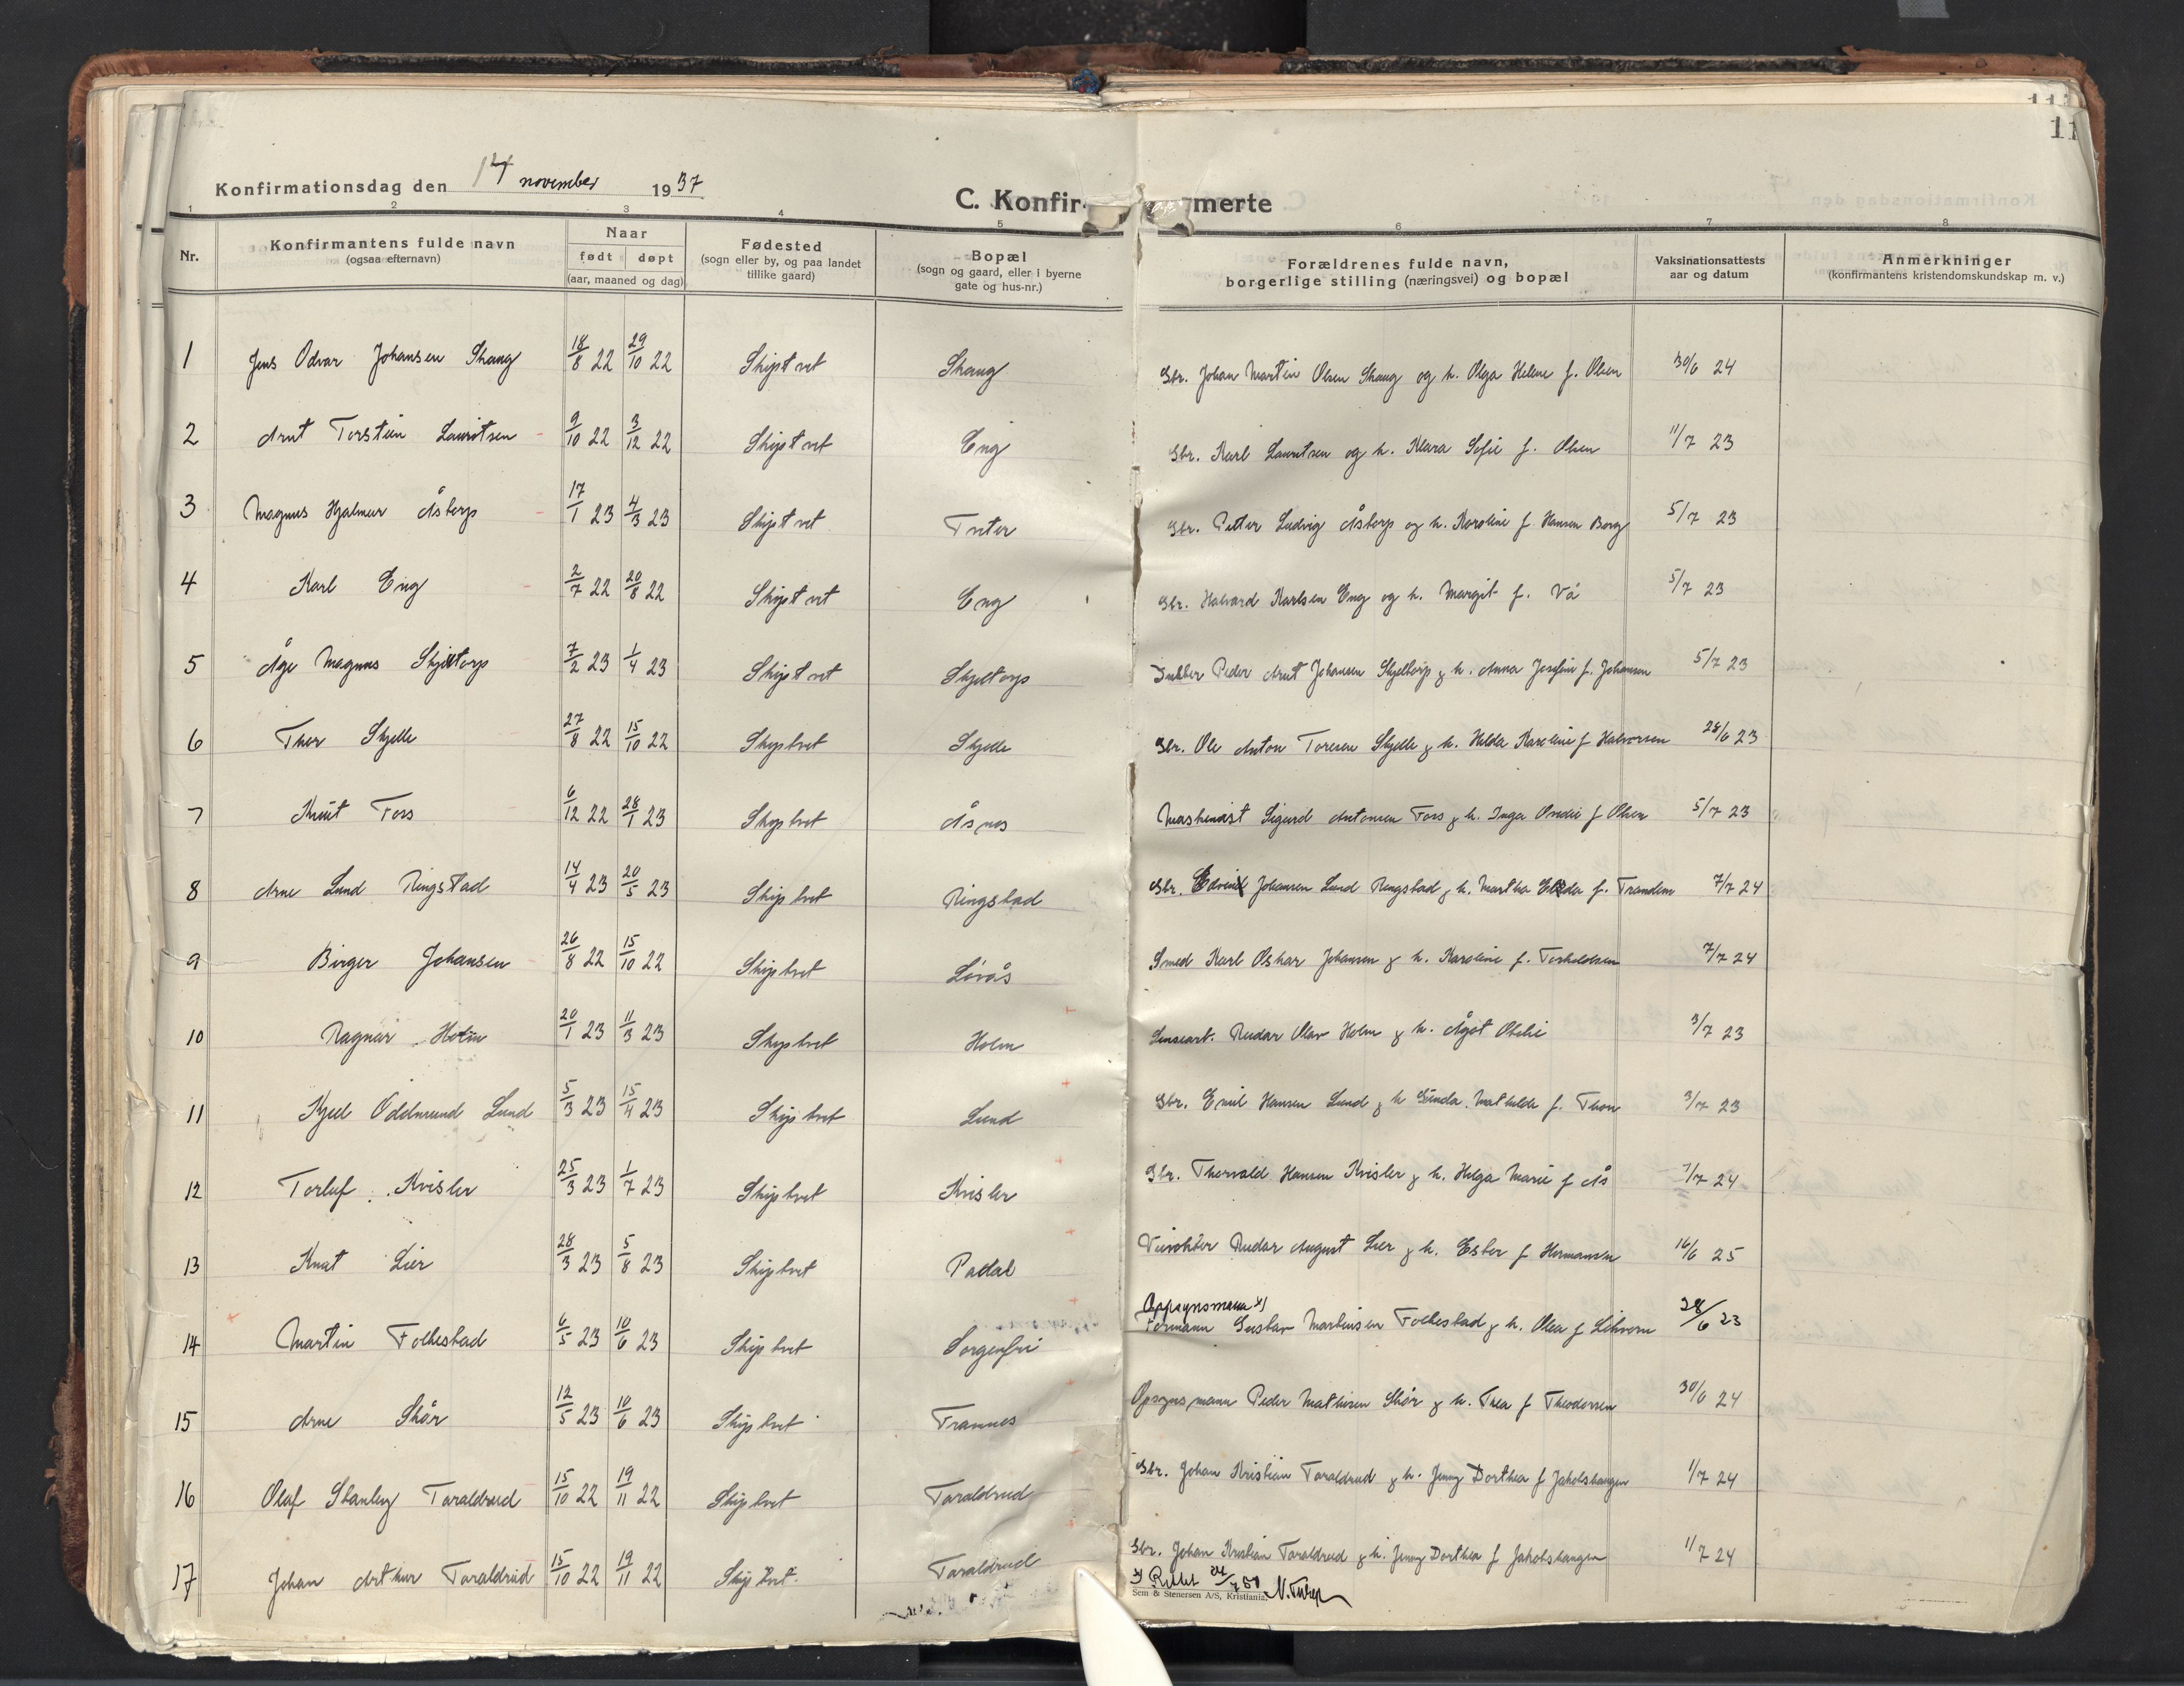 11
Konfirmationsdag den 14 november 1937
C. Konfir- merte
1 2 3 4 5 6 7 8
Nr. Konfirmantens fulde navn (ogsaa efternavn) Naar født døpt (aar, maaned og dag) Fødested (sogn eller by, og paa landet tillike gaard) Bopæl (sogn og gaard, eller i byerne gate og hus-nr.) Forældrenes fulde navn, borgerlige stilling (næringsvei) og bopæl Vaksinationsattests aar og datum Anmerkninger (konfirmantens kristendomskundskap m. v.)
1 Jens Odvar Johansen Skaug 18/8 22 29/10 22 Skiptvet Skaug Gbr. Johan Martin Olsen Skaug og h. Olga Helene f. Olsen 30/6 24
2 Arnt Torstein Lauritsen 9/10 22 3/12 22 Skiptvet Eng Gbr. Karl Lauritsen og h. Klara Sofie f. Olsen 11/7 23
3 Magnus Hjalmar Åstorp 17/1 23 4/3 23 Skiptvet Treter Gbr. Petter Ludvig Åstorp og h. Karoline f Hansen Borg 5/7 23
4 Karl Eng 2/7 22 20/8 22 Skiptvet Eng Gbr. Halvard Karlsen Eng og h. Margit f. Vå 5/7 23
5 Åge Magnus Skjeltorp 7/2 23 1/4 23 Skiptvet Skjeltorp Peder Arnt Johansen Skjeltorp g h. Anna Josefine f. Johansen 5/7 23
6 Thor Skjelle 27/8 22 15/10 22 Skiptvet Skjelle Gbr. Ole Anton Toresen Skjelle g h. Hilda Karoline f Halvorsen 28/6 23
7 Knut Foss 6/12 22 28/1 23 Skiptvet Åsnes Maskinist Sigurd Antonsen Foss g h. Inga f Olsen 5/7 23
8 Arne Lund Ringstad 14/4 23 20/5 23 Skiptvet Ringstad Gbr. Johansen Lund Ringstad g h. Martha f. Trandem 7/7 24
9 Birger Johansen 26/8 22 15/10 22 Skiptvet Løvås Smed Karl Oskar Johansen g h. Karoline f. Torkeldsen 7/7 24
10 Ragnar Holm 20/1 23 11/3 23 Skiptvet Holm Reidar Olav Holm g h. Ågot Otelie 3/7 23
11 Kjell Oddmund Lund 5/3 23 15/4 23 Skiptvet Lund Gbr. Emil Hansen Lund g h Gunda Mathilde f. Thon 3/7 23
12 Torleif Kvisler 25/3 23 1/7 23 Skiptvet Kvisler Gbr. Thorvald Hansen Kvisler g h. Helga Marie f Ås 7/7 24
13 Knut Lier 28/3 23 5/8 23 Skiptvet Padal Reidar August Lier g h. Ester f Hermansen 16/6 25
Oppsynsmann x)
14 Martin Folkestad 6/5 23 10/6 23 Skiptvet Sorgenfri Formann Gustav Martinsen Folkestad g h. Olea f 28/6 23
15 Arne Skår 12/5 23 10/6 23 Skiptvet Framnes Opsynsmann Peder Mathisen Skår g h. Thea f Theodorsen 30/6 24
16 Olaf Stanley Taraldrud 15/10 22 19/11 22 Skiptvet Taraldrud Gbr. Johan Kristian Taraldrud g h. Jenny Dorthea f Jakobshaugen 1/7 24
17 Johan Arthur Taraldrud 15/10 22 19/11 22 Skiptvet Taraldrud Gbr. Johan Kristian Taraldrud g h. Jenny Dorthea f Jakobshaugen 11/7 24
x) Rettet
Sem & Stenersen A/S, Kristiania.